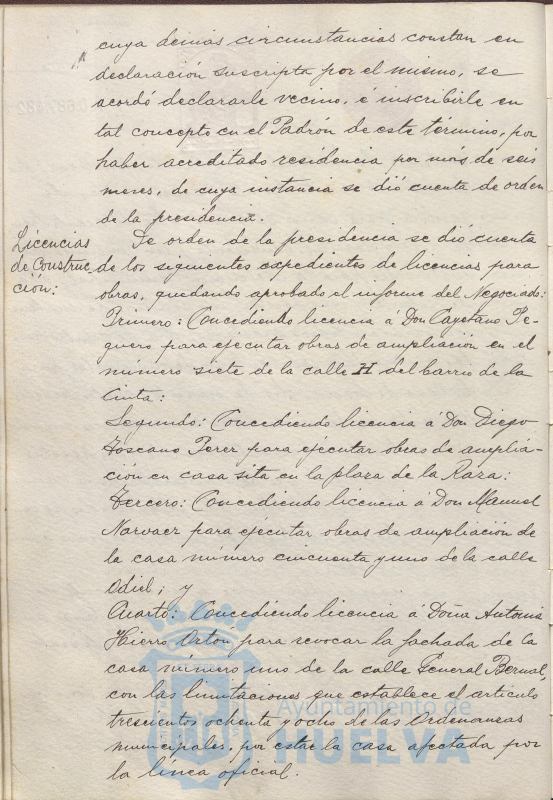 cuya demás circunstancias constan en
declaración suscripta por el mismo, se
acordó declararle vecino, é inscribirle en
tal concepto en el Padrón de este término, por
haber acreditado residencia por más de seis
meses, de cuya instancia se dió cuenta de orden
de la presidencia.
Licencias
de Construc
ción:
De orden de la presidencia se dió cuenta
de los siguientes expedientes de licencias para
obras, quedando aprobado el informe del Negociado:
Primero: Concediendo licencia á Don Cayetano Pe-
guero para ejecutar obras de ampliación en el
número siete de la calle H del barrio de la
Cinta:
Segundo: Concediendo licencia á Don Diego
Toscano Perez para ejecutar obras de amplia-
ción en casa sita en la plaza de la Raza:
Tercero: Concediendo licencia á Don Manuel
Narvaez para ejecutar obras de ampliación de
la casa número cincuenta y uno de la calle
Odiel; y
Cuarto: Concediendo licencia á Doña Antonia
Hierro Orton para revocar la fachada de la
casa número uno de la calle General Bernal,
con las limitaciones que establece el artículo
trescientos ochenta y ocho de las Ordenanzas
municipales, por estar la casa afectada por
la línea oficial.
Ayuntamiento de
HUELVA